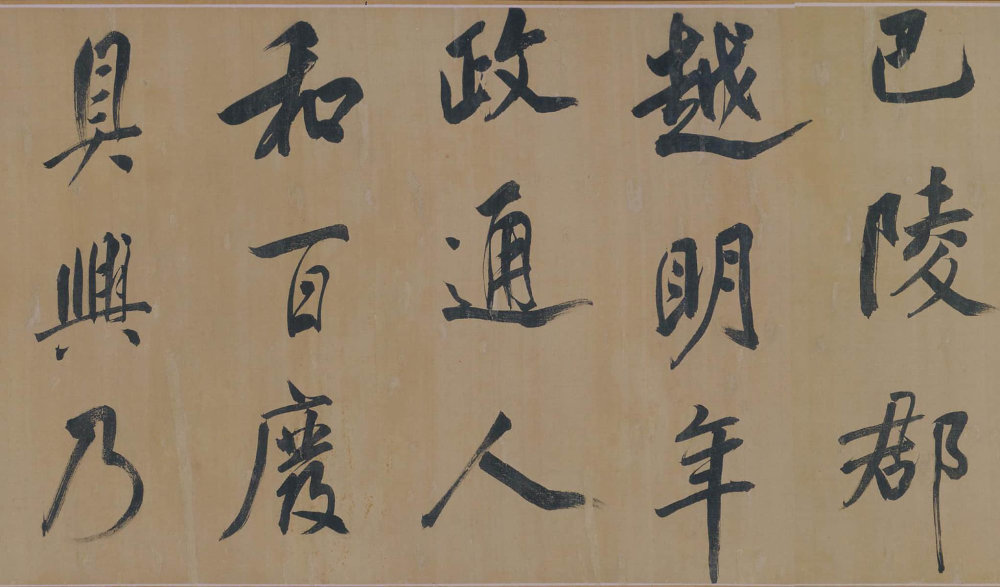 巴陵郡
越明年
政通人
和百廢
具興乃